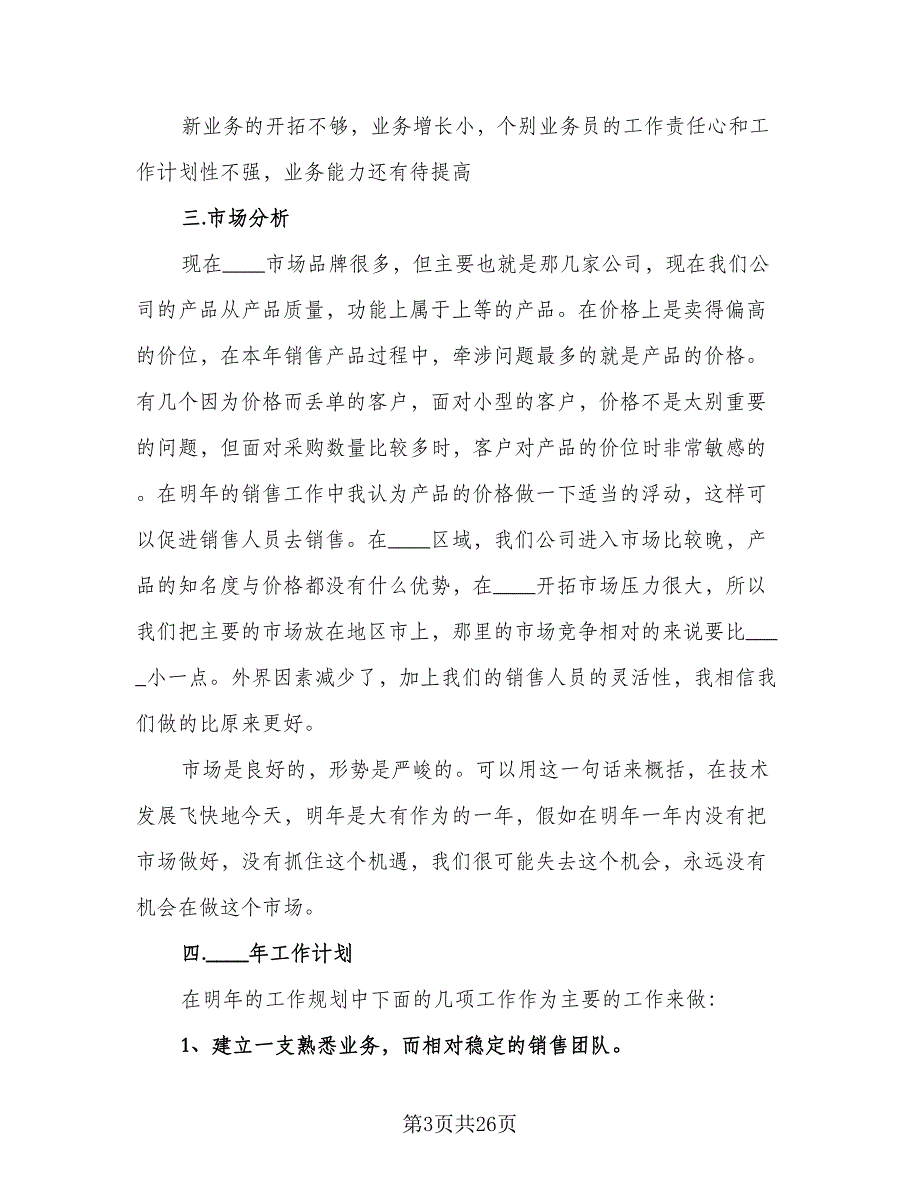 新业务的开拓不够，业务增长小，个别业务员的工作责任心和工
作计划性不强，业务能力还有待提高
三.市场分析
现在____市场品牌很多，但主要也就是那几家公司，现在我们公
司的产品从产品质量，功能上属于上等的产品。在价格上是卖得偏高
的价位，在本年销售产品过程中，牵涉问题最多的就是产品的价格。
有几个因为价格而丢单的客户，面对小型的客户，价格不是太别重要
的问题，但面对采购数量比较多时，客户对产品的价位时非常敏感的
。在明年的销售工作中我认为产品的价格做一下适当的浮动，这样可
以促进销售人员去销售。在____区域，我们公司进入市场比较晚，产
品的知名度与价格都没有什么优势，在____开拓市场压力很大，所以
我们把主要的市场放在地区市上，那里的市场竞争相对的来说要比___
_小一点。外界因素减少了，加上我们的销售人员的灵活性，我相信我
们做的比原来更好。
市场是良好的，形势是严峻的。可以用这一句话来概括，在技术
发展飞快地今天，明年是大有作为的一年，假如在明年一年内没有把
市场做好，没有抓住这个机遇，我们很可能失去这个机会，永远没有
机会在做这个市场。
四.____年工作计划
在明年的工作规划中下面的几项工作作为主要的工作来做：
1、建立一支熟悉业务，而相对稳定的销售团队。
第3页共26页